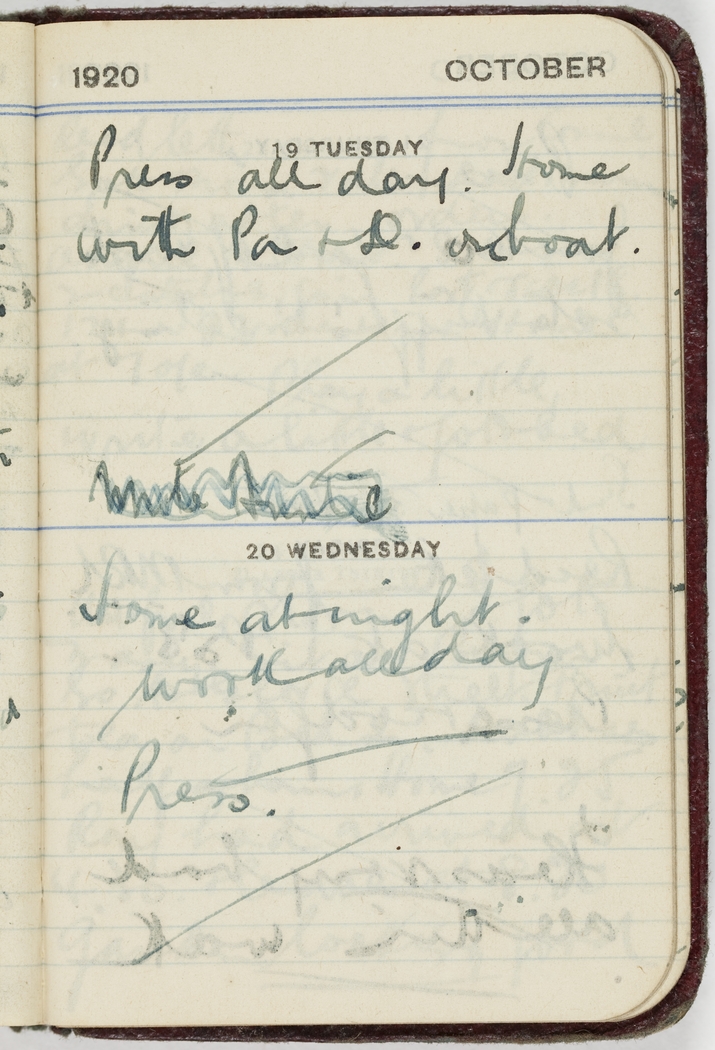 1920 OCTOBER
19 TUESDAY
Press all day. Home
with Pa + D. on boat.
20 WEDNESDAY
Home at night.
Work all day
Press.